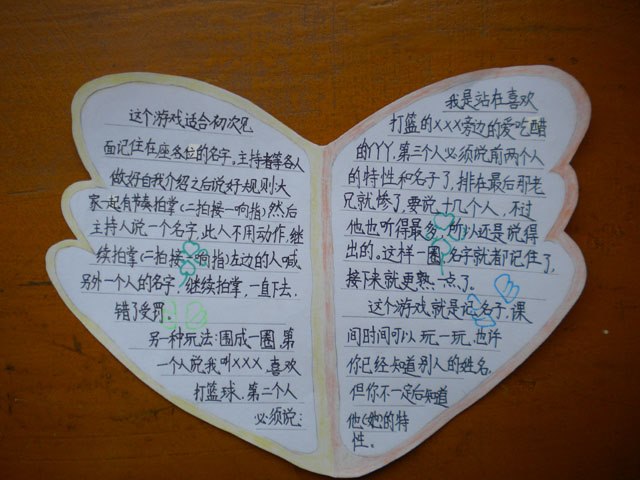 这个游戏适合初次见
面记住在座各位的名字,主持者等各人
做好自我介绍之后说好规则大
家一起有节奏拍掌(二拍接一响指)然后
主持人说一个名字,此人不用动作,继
续拍掌(二拍接一响指)左边的人喊
另外一个人的名字,继续拍掌,一直下去,
错了受罚。
另一种玩法:围成一圈,第
一个人说我叫XXX,喜欢
打篮球,第二个人
必须说:
我是站在喜欢
打篮的XXX旁边的爱吃醋
的YY,第三个人必须说前两个人
的特性和名子了,排在最后那老
兄就惨了,要说十几个人,不过
他也听得最多,所以还是说得
出的。这样一圈,名字就都记住了,
接下来就更熟一点了。
这个游戏就是记名子,课
间时间可以玩一玩,也许
你已经知道别人的姓名,
但你不一定后知道
他(她)的特
性。